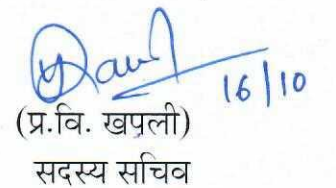 16/10
(प्र.वि. खपली)
सदस्य सचिव